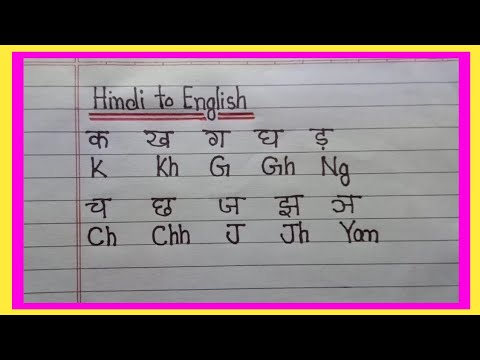 Hindi to English
क ख ग घ ड़
K Kh G Gh Ng
च छ ज झ ञ
Ch Chh J Jh Yan